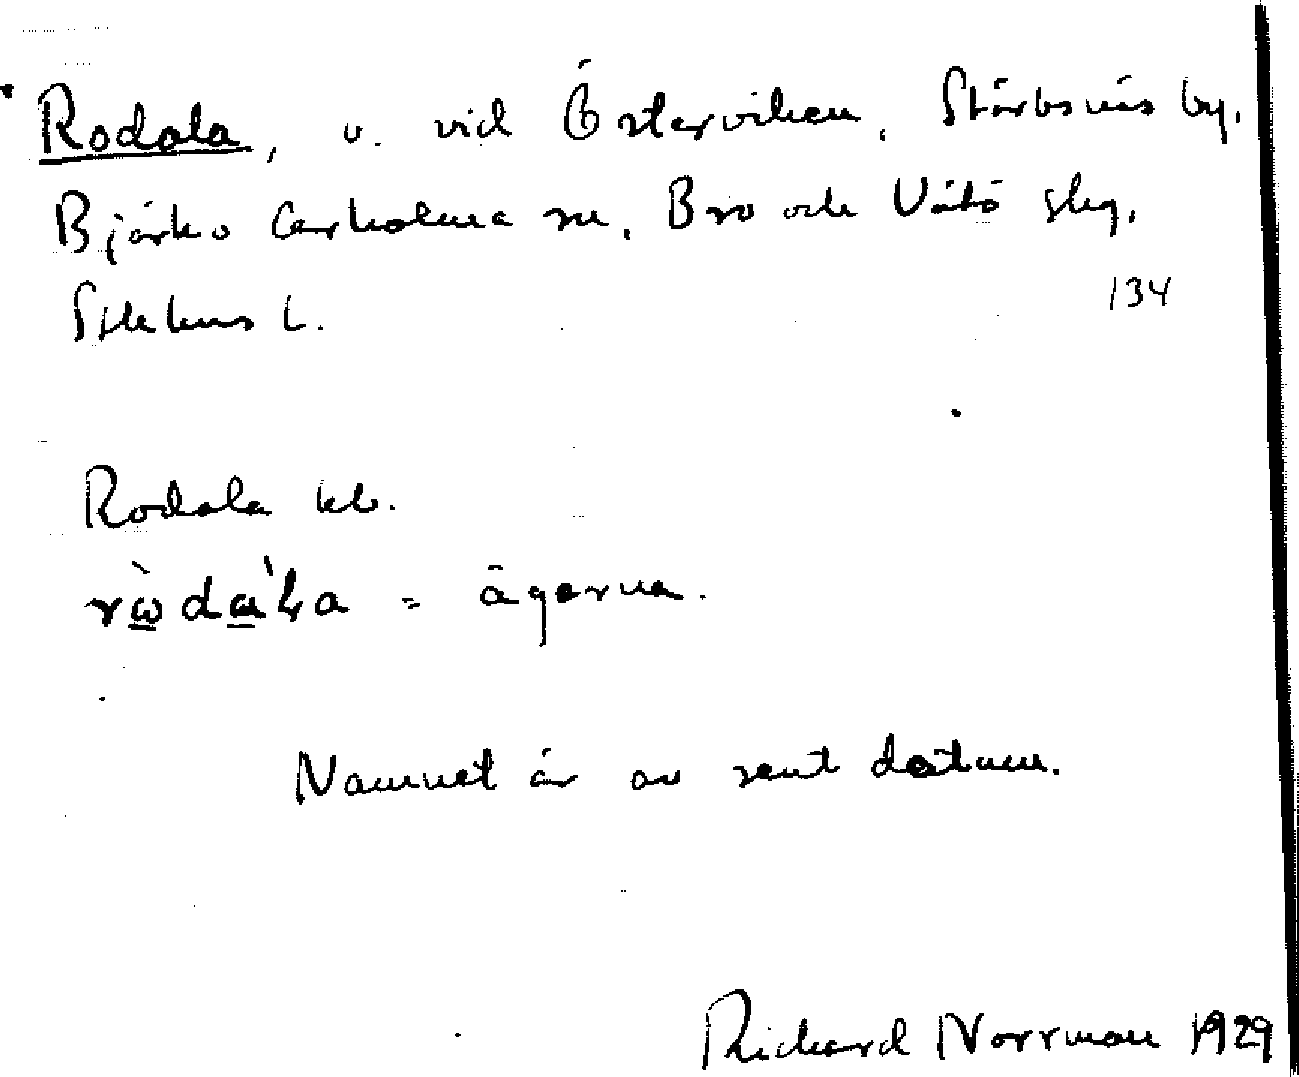 Rodala, v. vid Österviken, Stärbsnäs by.
Björkö Arholma sn, Bro och Vätö skg,
Sthlms l.
134
Rodala kb.
rὼdaʹla = ägarna.
Namnet är av sent datum.
Richard Norrman 1929